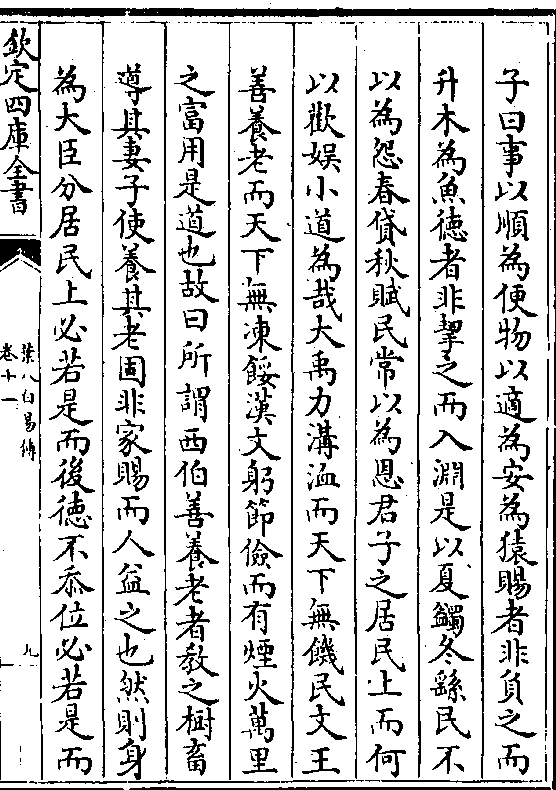 子曰事以順為便物以適為安為猿賜者非負之而
升木為魚徳者非挈之而入淵是以夏蠲冬繇民不
以為怨春貸秋賦民常以為恩君子之居民上而何
以歡娱小道為哉大禹力溝洫而天下無饑民文王
善養老而天下無凍餒漢文躬節儉而有煙火萬里
之富用是道也故曰所謂西伯善養老者教之樹畜
導其妻子使養其老固非家賜而人益之也然則身
為大臣分居民上必若是而後徳不忝位必若是而
欽定四庫全書
葉八白易傳
卷十一
九